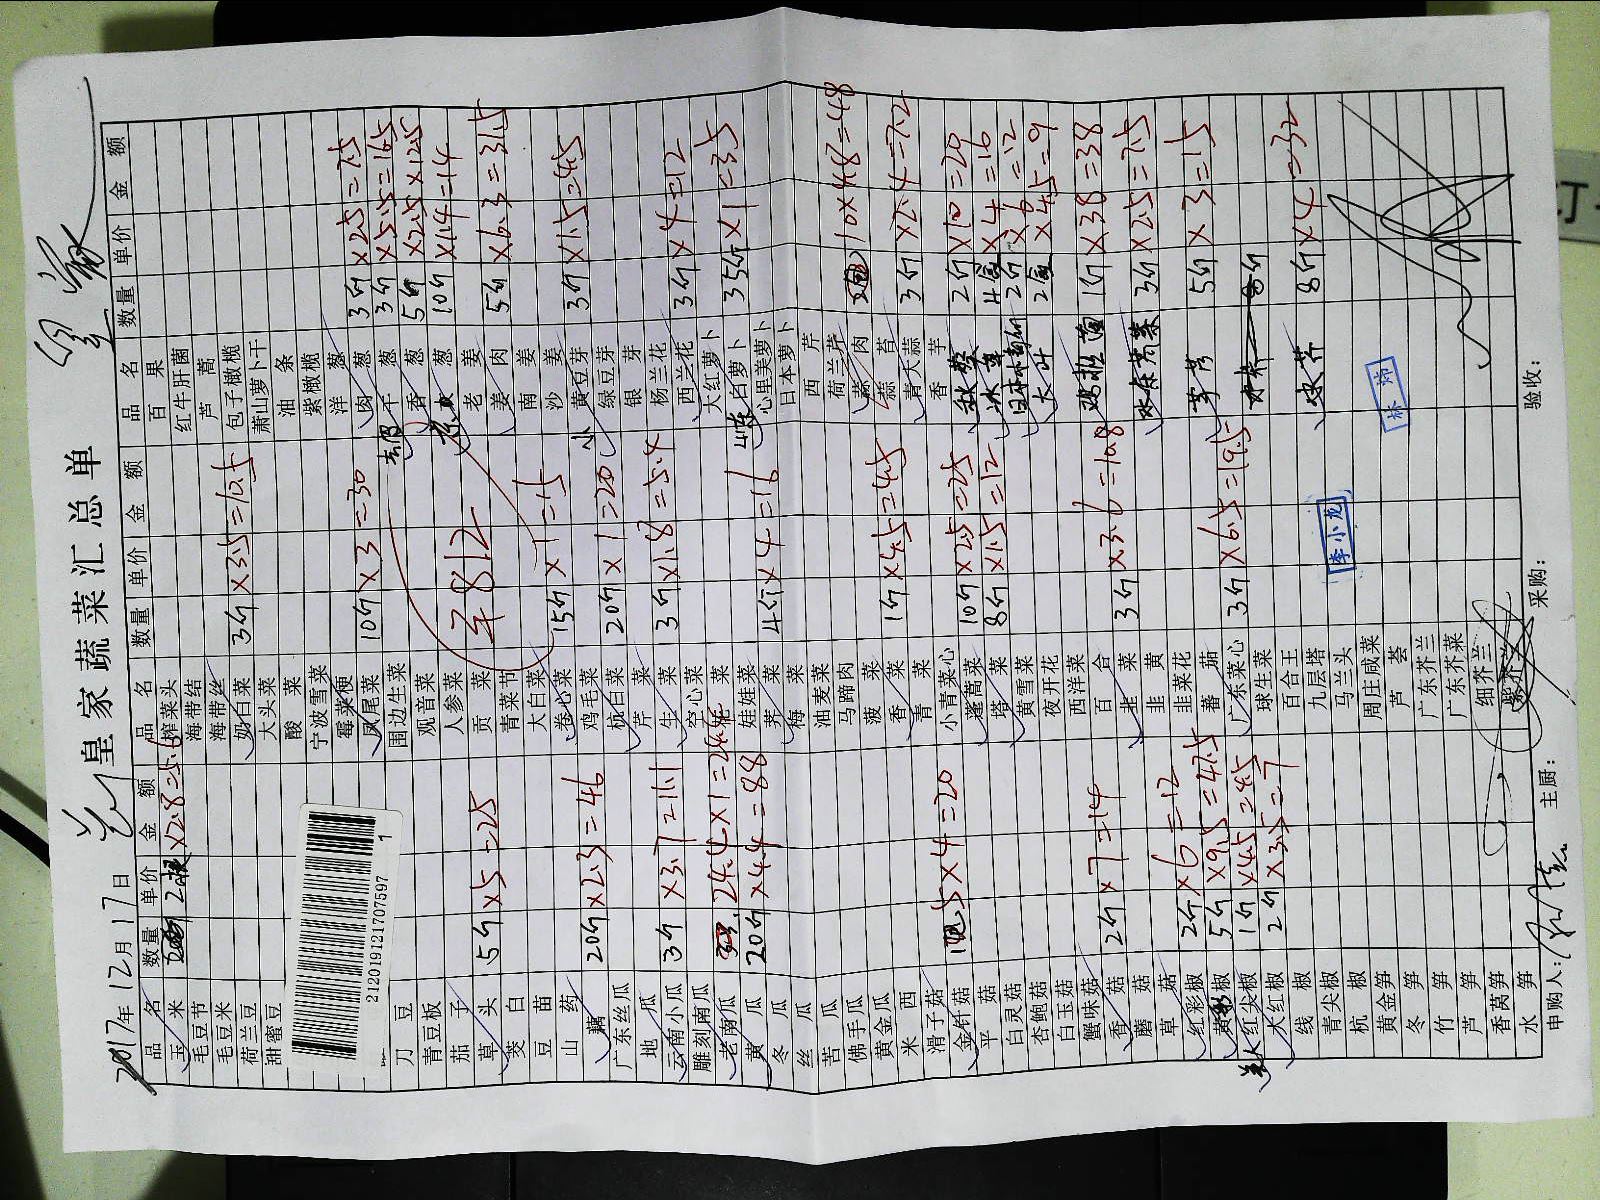 皇家蔬菜汇总单
2017年12月17日
品名 数量 单价 金额 品名 数量 单价 金额 品名 数量 单价 金额
玉米 ×2.8=5.6 榨菜头 百果
毛豆节 海带结 红牛肝菌
毛豆米 海带丝 芦蒿
荷兰豆 奶白菜 3斤×3.5=10.5 包子橄榄
甜蜜豆 大头菜 萧山萝卜干
酸菜 油条
宁波雪菜 紫橄榄
霉菜梗 洋葱 3斤×2.5=7.5
凤尾菜 10斤×3=30 肉葱 3斤×5.5=16.5
刀豆 围边生菜 干葱 5斤×2.5×12.5
青豆板 观音菜 香葱 10斤×1.4=14
茄子 人参菜 葱
草头 5斤×5=25 贡菜 老姜 5斤×6.3=31.5
茭白 青菜节 姜肉
豆苗 大白菜 南姜
山药 卷心菜 15斤×1=15 沙姜 3斤×1.5=4.5
藕 20斤×2.3=46 鸡毛菜 小黄豆芽
广东丝瓜 杭白菜 20斤×1=20 绿豆芽
地瓜 芹菜 银芽
云南小瓜 3斤×3.7=11.1 生菜 3斤×1.8=5.4 杨兰花
雕刻南瓜 空心菜 西兰花 3斤×4=12
老南瓜 24.4×1=24.4 大红萝卜
黄瓜 20斤×4.4=88 娃娃菜 白萝卜 35斤×1=35
冬瓜 荠菜 4斤×4=16 心里美萝卜
丝瓜 梅菜 日本萝卜
苦瓜 油麦菜 西芹
佛手瓜 马蹄肉 荷兰芹 10×4.8=48
黄金瓜 菠菜 蒜肉
米西 香菜 1斤×4.5=4.5 蒜苔 3斤×2.4=7.2
滑子菇 青菜 青大蒜
金针菇 5×4=20 小青菜心 香芋
平菇 蓬蒿菜 10斤×2.5=25 秋葵 2斤×10=20
白灵菇 塔菜 8斤×1.5=12 冰草 4盒×4=16
杏鲍菇 黄雪菜 2斤×6=12
白玉菇 夜开花 大叶 2盒×4.5=9
蟹味菇 西洋菜
香菇 2斤×7=14 百合 鸡枞菌 1斤×38=38
蘑菇 韭菜 3斤×3.6=10.8
草菇 韭黄 水东芥菜 3斤×2.5=7.5
红彩椒 2斤×6=12 韭菜花
黄彩椒 5斤×9.5=47.5 蕃茄 芋艿 5斤×3=15
红尖椒 1斤×4.5=4.5 广东菜心 3斤×6.5=19.5
大红椒 2斤×3.5=7 球生菜
线椒 百合王 水芹 8斤×4=32
青尖椒 九层塔
杭椒 马兰头
黄金笋 周庄咸菜
冬笋 芦荟
竹笋 广东芥兰
芦笋 广东芥菜
香莴笋 细芥兰
水笋 紫芥兰
￥812
212019121707597 1
李小龙
申购人: 主厨: 采购: 验收: